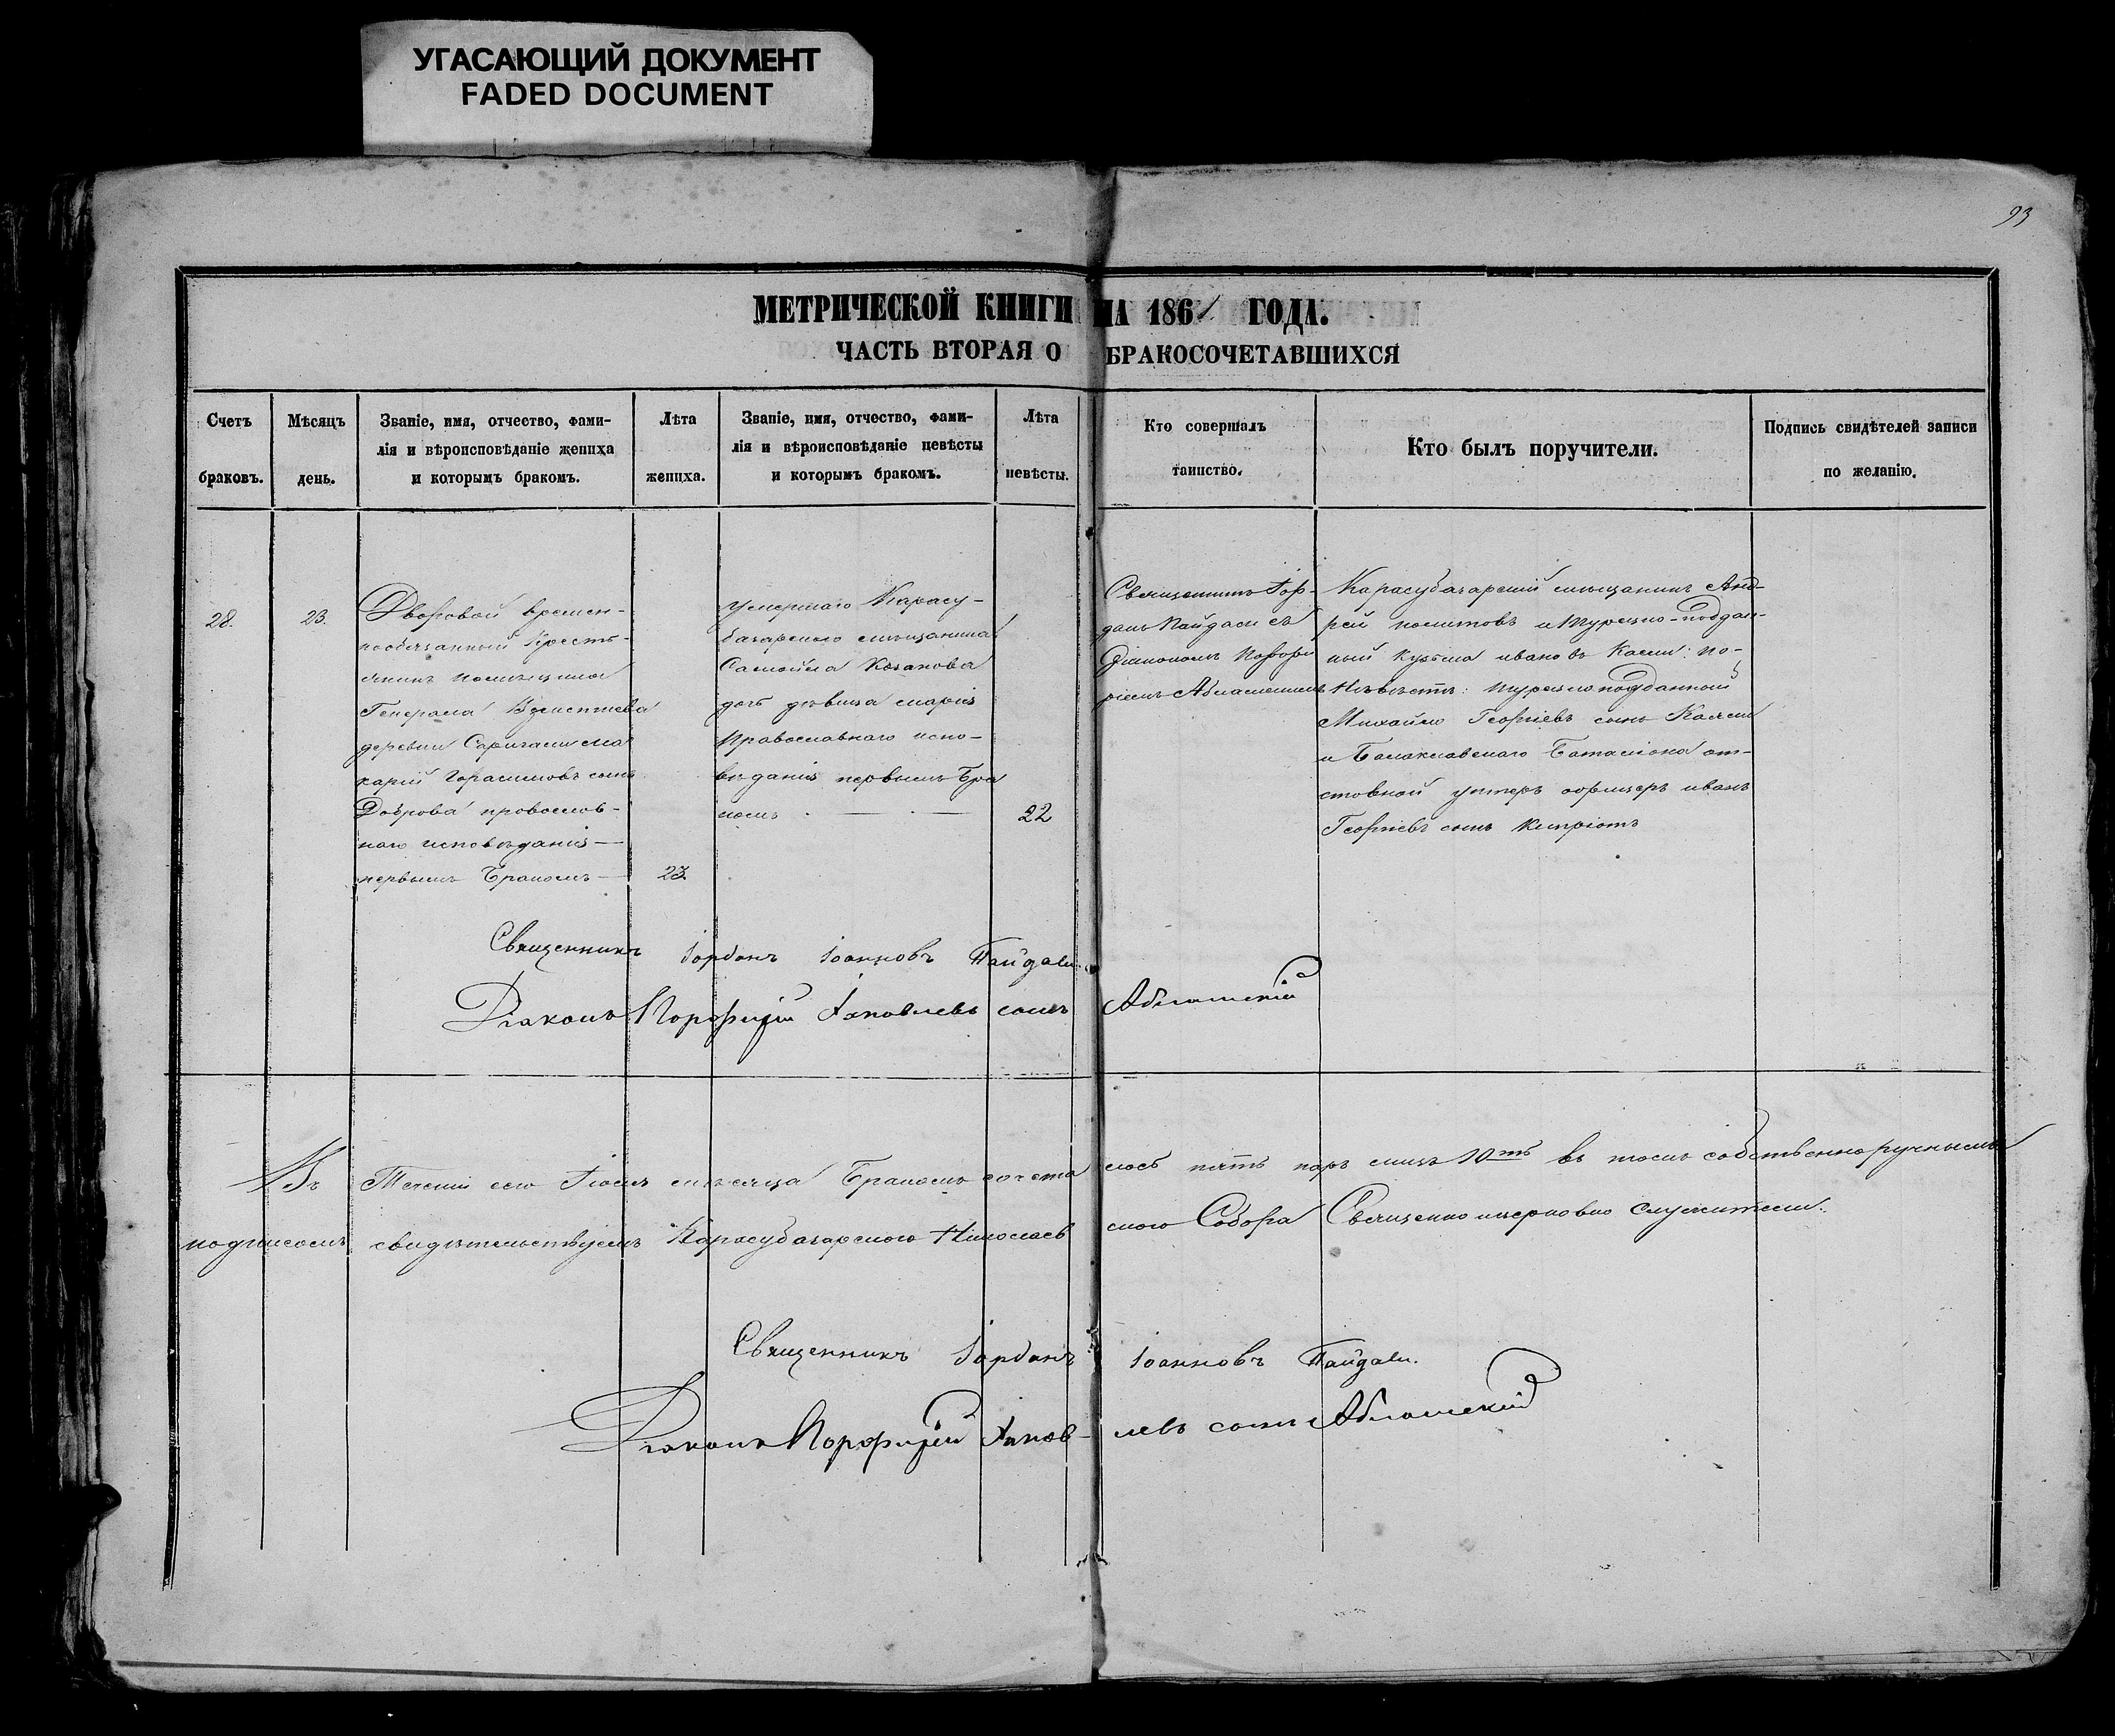 УГАСАЮЩИЙ ДОКУМЕНТ
FADED DOCUMENT
93
МЕТРИЧЕСКОЙ КНИГИ НА 1861 ГОДА.
ЧАСТЬ ВТОРАЯ О БРАКОСОЧЕТАВШИХСЯ
Счетъ
браковъ.
Мѣсяцъ
день.
Званіе, имя, отчество, фами-
лія и вѣроисповѣданіе жениха
и которымъ бракомъ.
Лѣта
жениха.
Званіе, имя, отчество, фами-
лія и вѣроисповѣданіе невѣсты
и которымъ бракомъ.
Лѣта
невѣсты.
Кто совершалъ
таинство.
Кто былъ поручители.
Подпись свидѣтелей записи
по желанію.
28.
23.
Дворовой времен-
нообязанный Кресть-
янинъ помѣщика
Генерала
деревни
карій Горасимовъ сынъ
Доброва провослав-
наго исповѣданія
первымъ Бракомъ
23.
умершаго Карасу-
базарскаго мѣщанина
Самойла Казакова
дочь дѣвица марія
Православнаго испо-
вѣданія первымъ Бра
комъ
22
Священникъ Іор-
данъ Пайдаси съ
Діакономъ Порфи
ріемъ
Карасубазарскій мѣщанинъ Анд-
рей и Турецко-поддан-
ный Кузьма ивановъ по-
Невѣстѣ: турецкоподданной
Михайло Георгіевъ сынъ
и Балаклавскаго Баталіона от-
ставной унтеръ офицеръ иванъ
Георгіевъ сынъ Кипріотъ
Священникъ Іорданъ Іоанновъ Пайдаси
Діаконъ Порфирій Яковлевъ сынъ
Въ Теченіи сего Іюля мѣсяца Бракомъ сочета лось пять паръ лицъ 10ть въ томъ собственноручнымъ
подписомъ свидѣтельствуемъ Карасубазарского Николаев ского Собора Священно и церковно служители:
Священникъ Іорданъ Іоанновъ Пайдаси.
Діаконъ Порфирій Яков- левъ сынъ